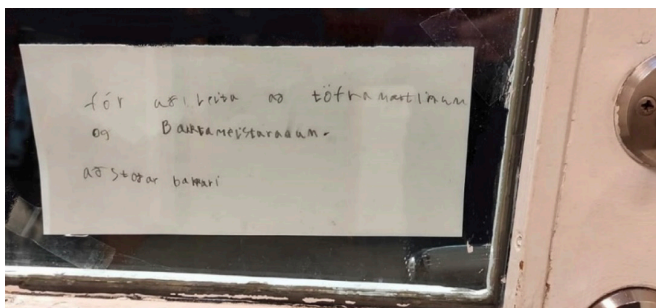 fór að leita að töframartinum
og Bakkameistaranum.
aðstoðar bakari